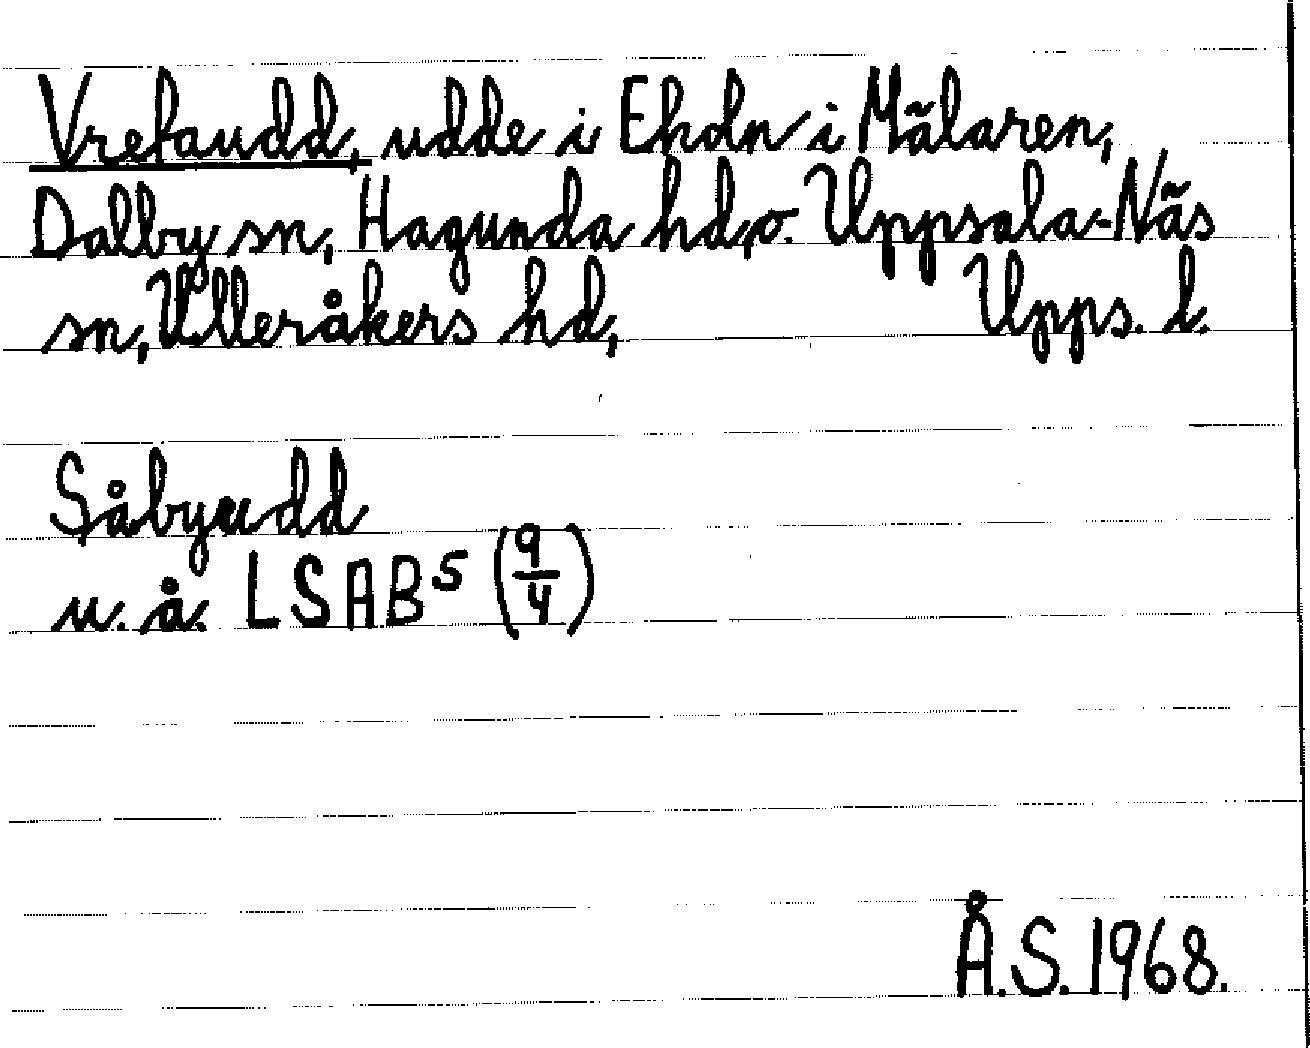 Vretaudd, udde i Ekoln i Mälaren,
Dalby sn, Hagunda hd, o. Uppsala-Näs
sn, Ulleråkers hd, Upps. l.
Såbyudd
u. å. LSA B5 (9/4)
Å.S. 1968.